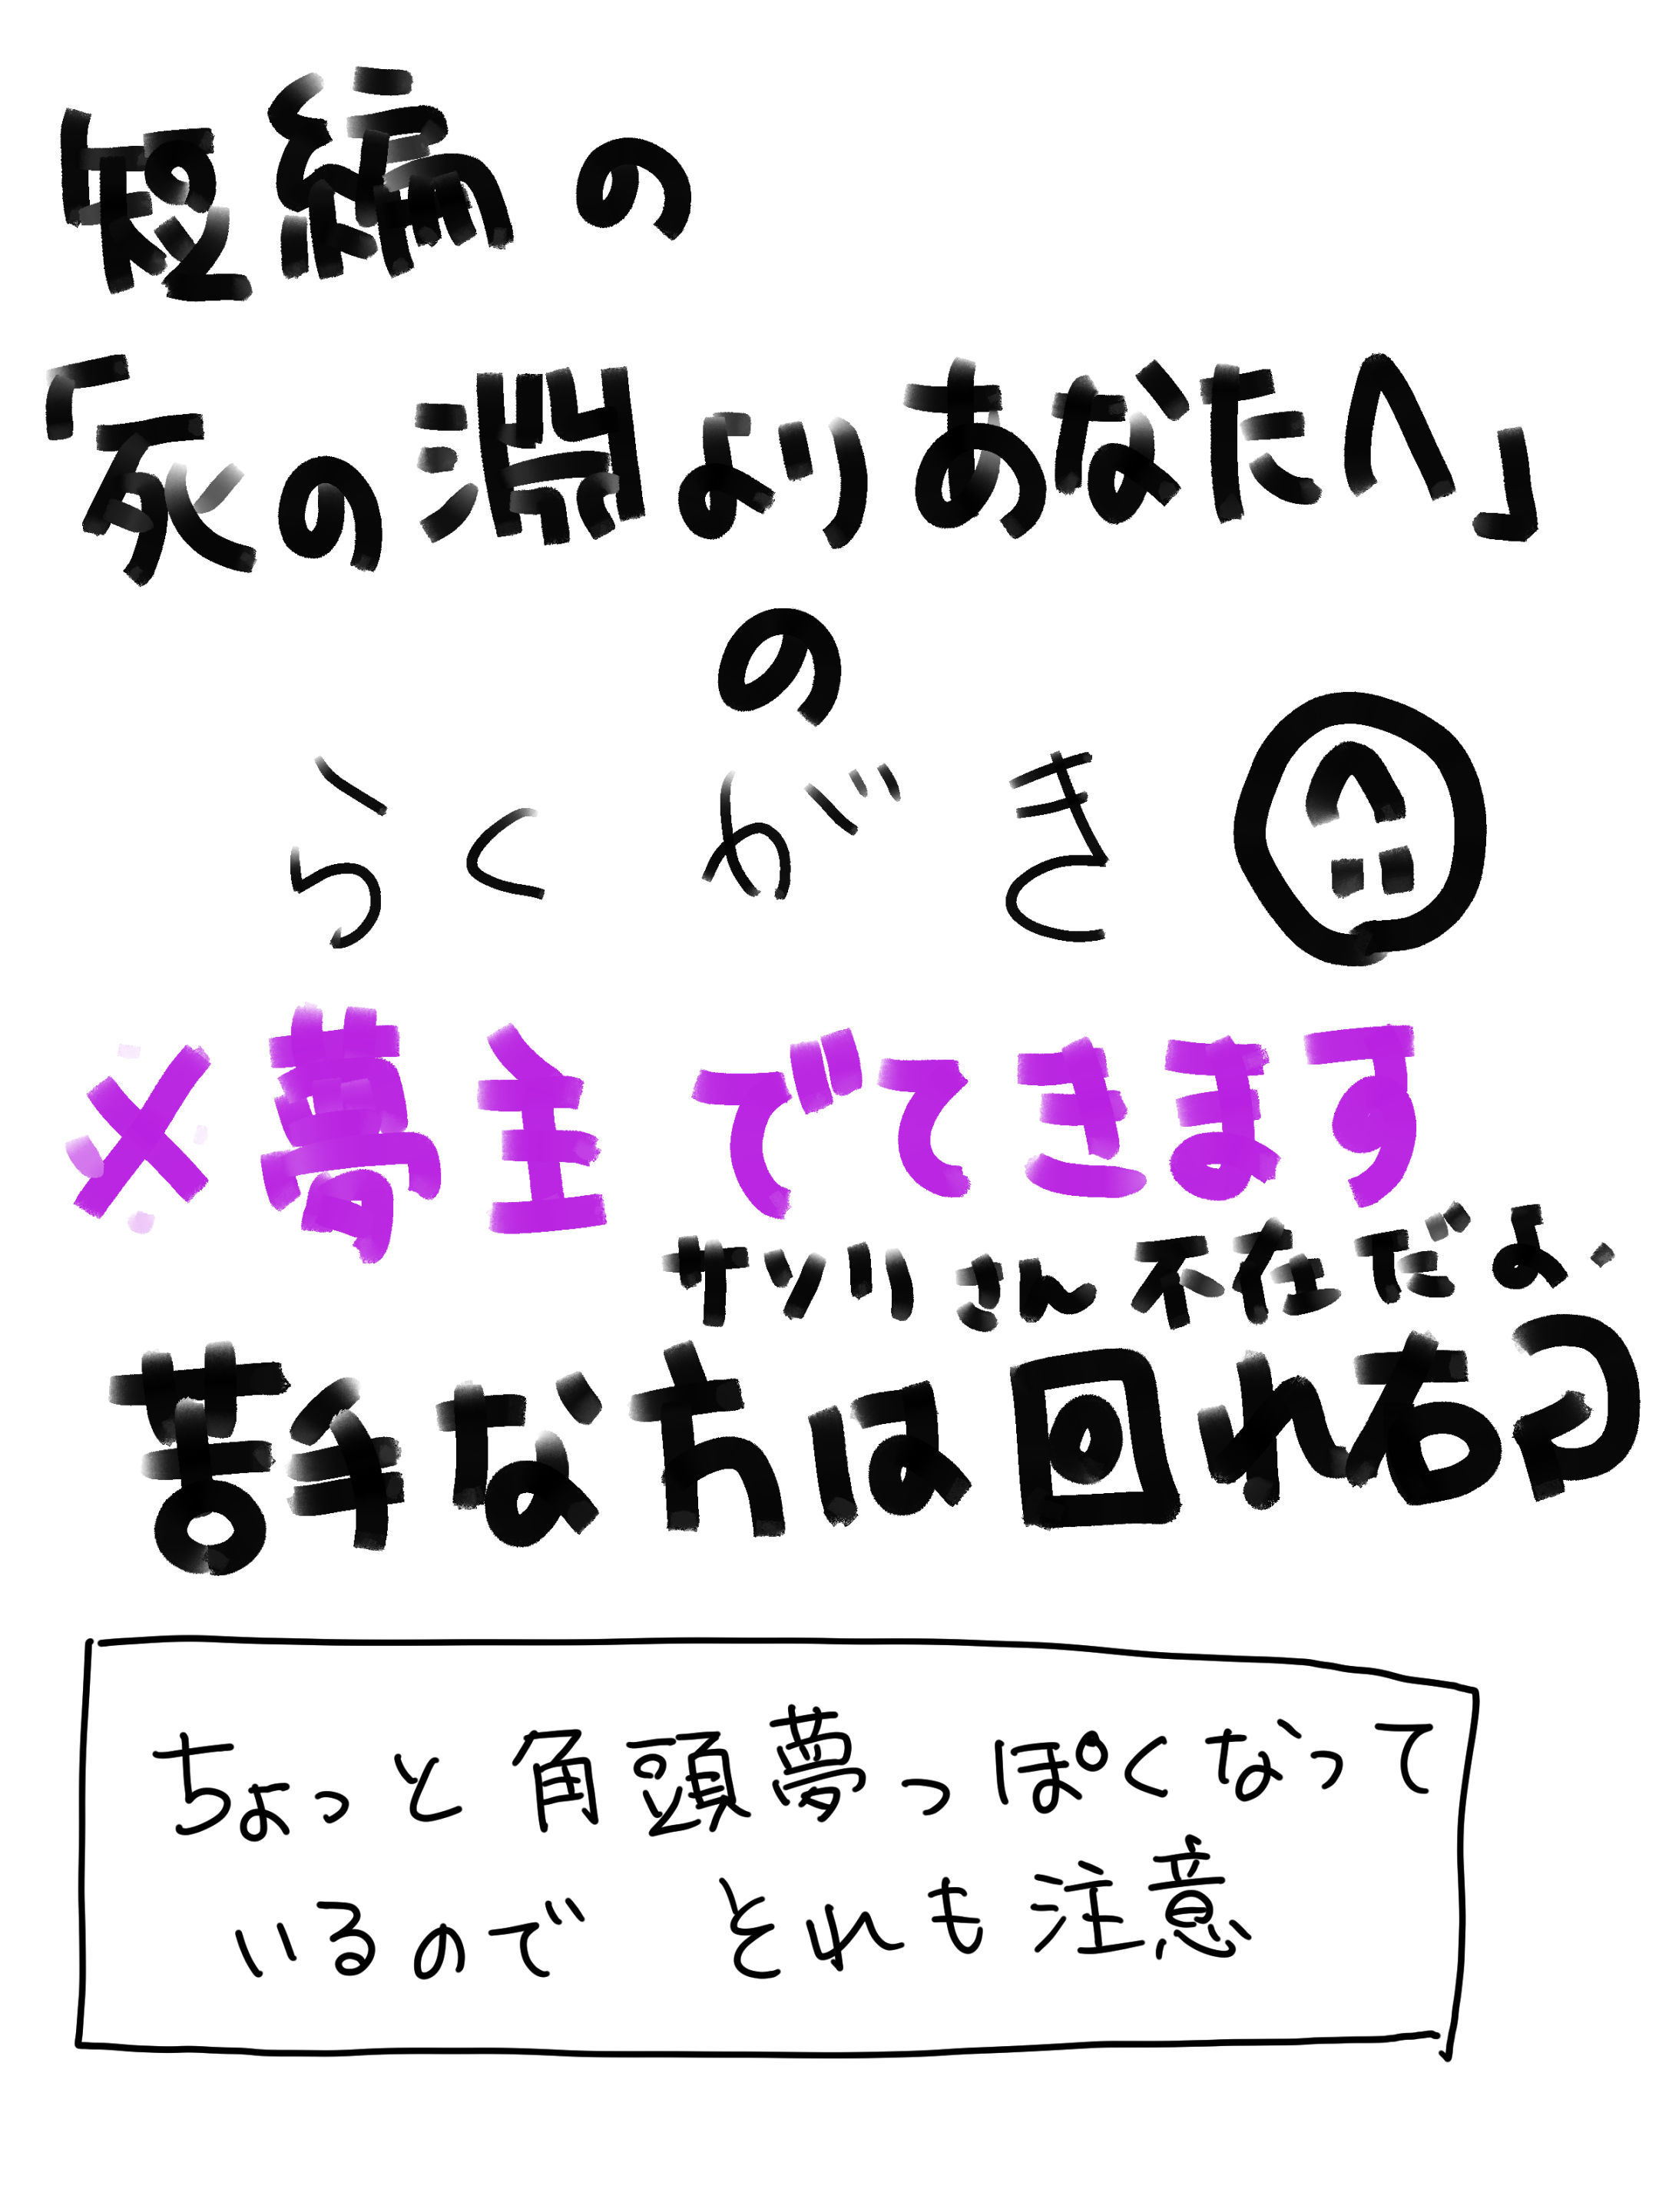 短編の
「死の淵よりあなたへ」
の
らくがき
※夢主でてきます
サソリさん不在だよ.
苦手な方は回れ右
ちょっと角頭夢っぽくなって
いるので それも注意